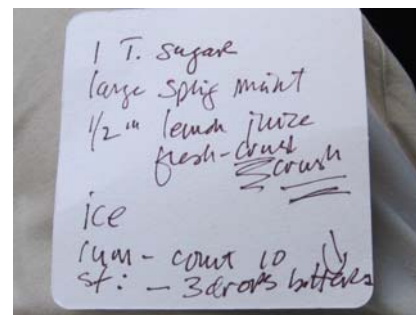 1 T. sugar
large sprig mint
1/2 " lemon juice
fresh - crush
crush
ice
rum - count 10
st: - 3 drops bitters